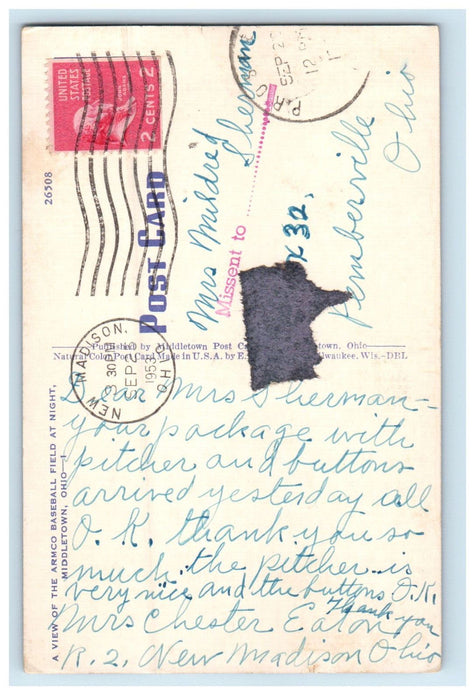 UNITED STATES POSTAGE
JOHN ADAMS
2 CENTS 2
26508
POST CARD
SEP 2
12
Mrs Mildred
Sherman
Missent to
x 32,
Pembersville
Ohio
Published by Middletown Post C town, Ohio
Natural Color Post Card Made in U.S.A. by E. lwaukee, Wis.-DEL
NEW MADISON, OHIO
3 30 PM
SEP 20
1953
A VIEW OF THE ARMCO BASEBALL FIELD AT NIGHT,
MIDDLETOWN, OHIO—1
Dear Mrs Sherman-
your package with
pitcher and buttons
arrived yesterday all
O.K. thank you so
much the pitcher is
very nice and the buttons O.K.
Thank you
Mrs Chester Eaton
R. 2, New Madison Ohio